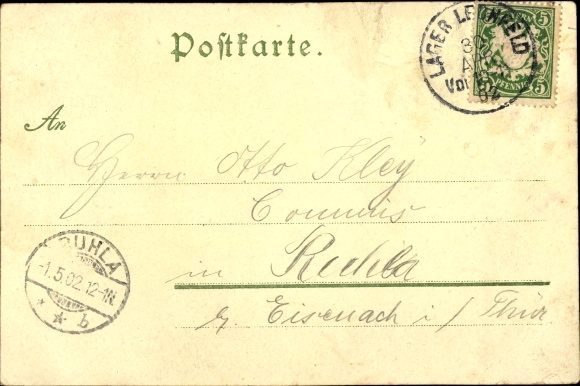 Postkarte.
LAGER LECHFELD
5 5
PFENNIG
An
Herrn Otto Kley
Commis
in Ruhla
b/ Eisenach i/Thür
RUHLA
-1.5.02.12-1N.
* * b